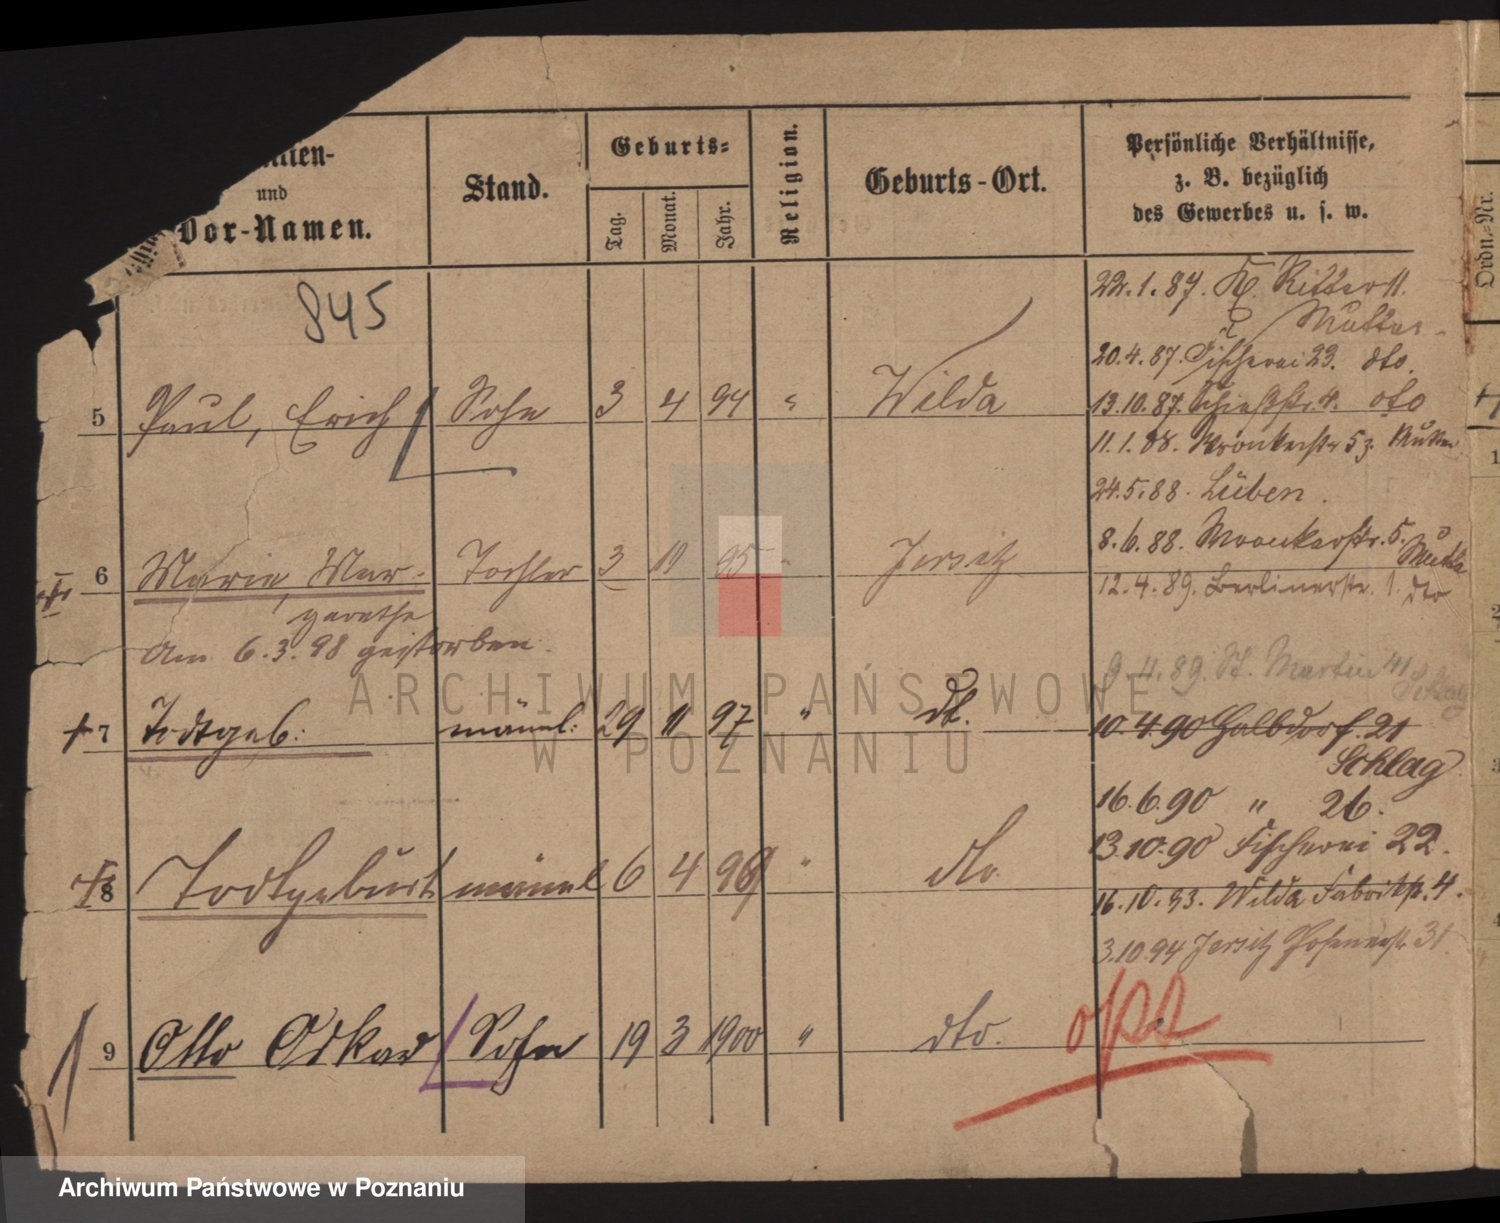 Familien-
und
Vor-Namen.
Stand.
Geburts-
Tag.
Monat.
Jahr.
Religion.
Geburts-Ort.
Persönliche Verhältnisse,
z. B. bezüglich
des Gewerbes u. s. w.
Ordn.-Nr.
845
5 Paul, Erich Sohn 3 4 94 " Wilda
6 Marie, Mar- Tochter 3 11 95 " Jersitz
garethe
Am 6.3.98 gestorben.
† 7 Todtgeb: männl: 29 11 97 " dt.
8 Todtgeburt männl 6 4 99 " dto
9 Otto Oskar Sohn 19 3 1900 " dto.
22.1.87. Ritterst.
Mutter
20.4.87. Fischerei 23. dto.
13.10.87. Schießstr. 4. dto
11.1.88. Wronkerstr 5 z. Mutter
24.5.88. Lüben.
8.6.88. Wronkerstr. 5.
Mutter
12.4.89. Berlinerstr. 1. dto
9.4.89. St. Martin 41
Schlag
10.4.90 Halbdorf. 21
Schlag
16.6.90 " 26.
13.10.90 Fischerei 22.
16.10.93. Wilda Fabrikstr. 4.
3.10.94 Jersitz Posenerstr. 31.
opt
ARCHIWUM PAŃSTWOWE
W POZNANIU
Archiwum Państwowe w Poznaniu